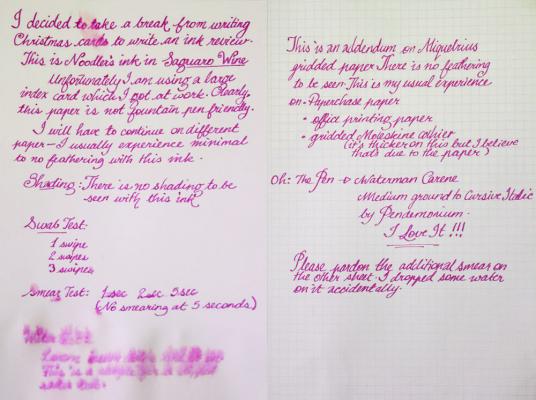 I decided to take a break from writing
Christmas cards to write an ink review.
This is Noodler's ink in Saguaro Wine
Unfortunately I am using a large
index card which I got at work. Clearly,
this paper is not fountain pen friendly.
I will have to continue on different
paper - I usually experience minimal
to no feathering with this ink.
Shading: There is no shading to be
seen with this ink
Swab Test:
1 swipe
2 swipes
3 swipes
Smear Test: 1sec 2sec 5sec
(No smearing at 5 seconds)
Water
This is a
This is an addendum on Miquelrius
gridded paper. There is no feathering
to be seen. This is my usual experience
on • Paperchase paper
• office printing paper
• gridded Moleskine cahier
(it's thicker on this but I believe
thats due to the paper)
Oh: The Pen → Waterman Carene
Medium ground to Cursive Italic
by Pendemonium.
I Love It !!!
Please pardon the additional smear on
the other sheet. I dropped some water
on it accidentally.